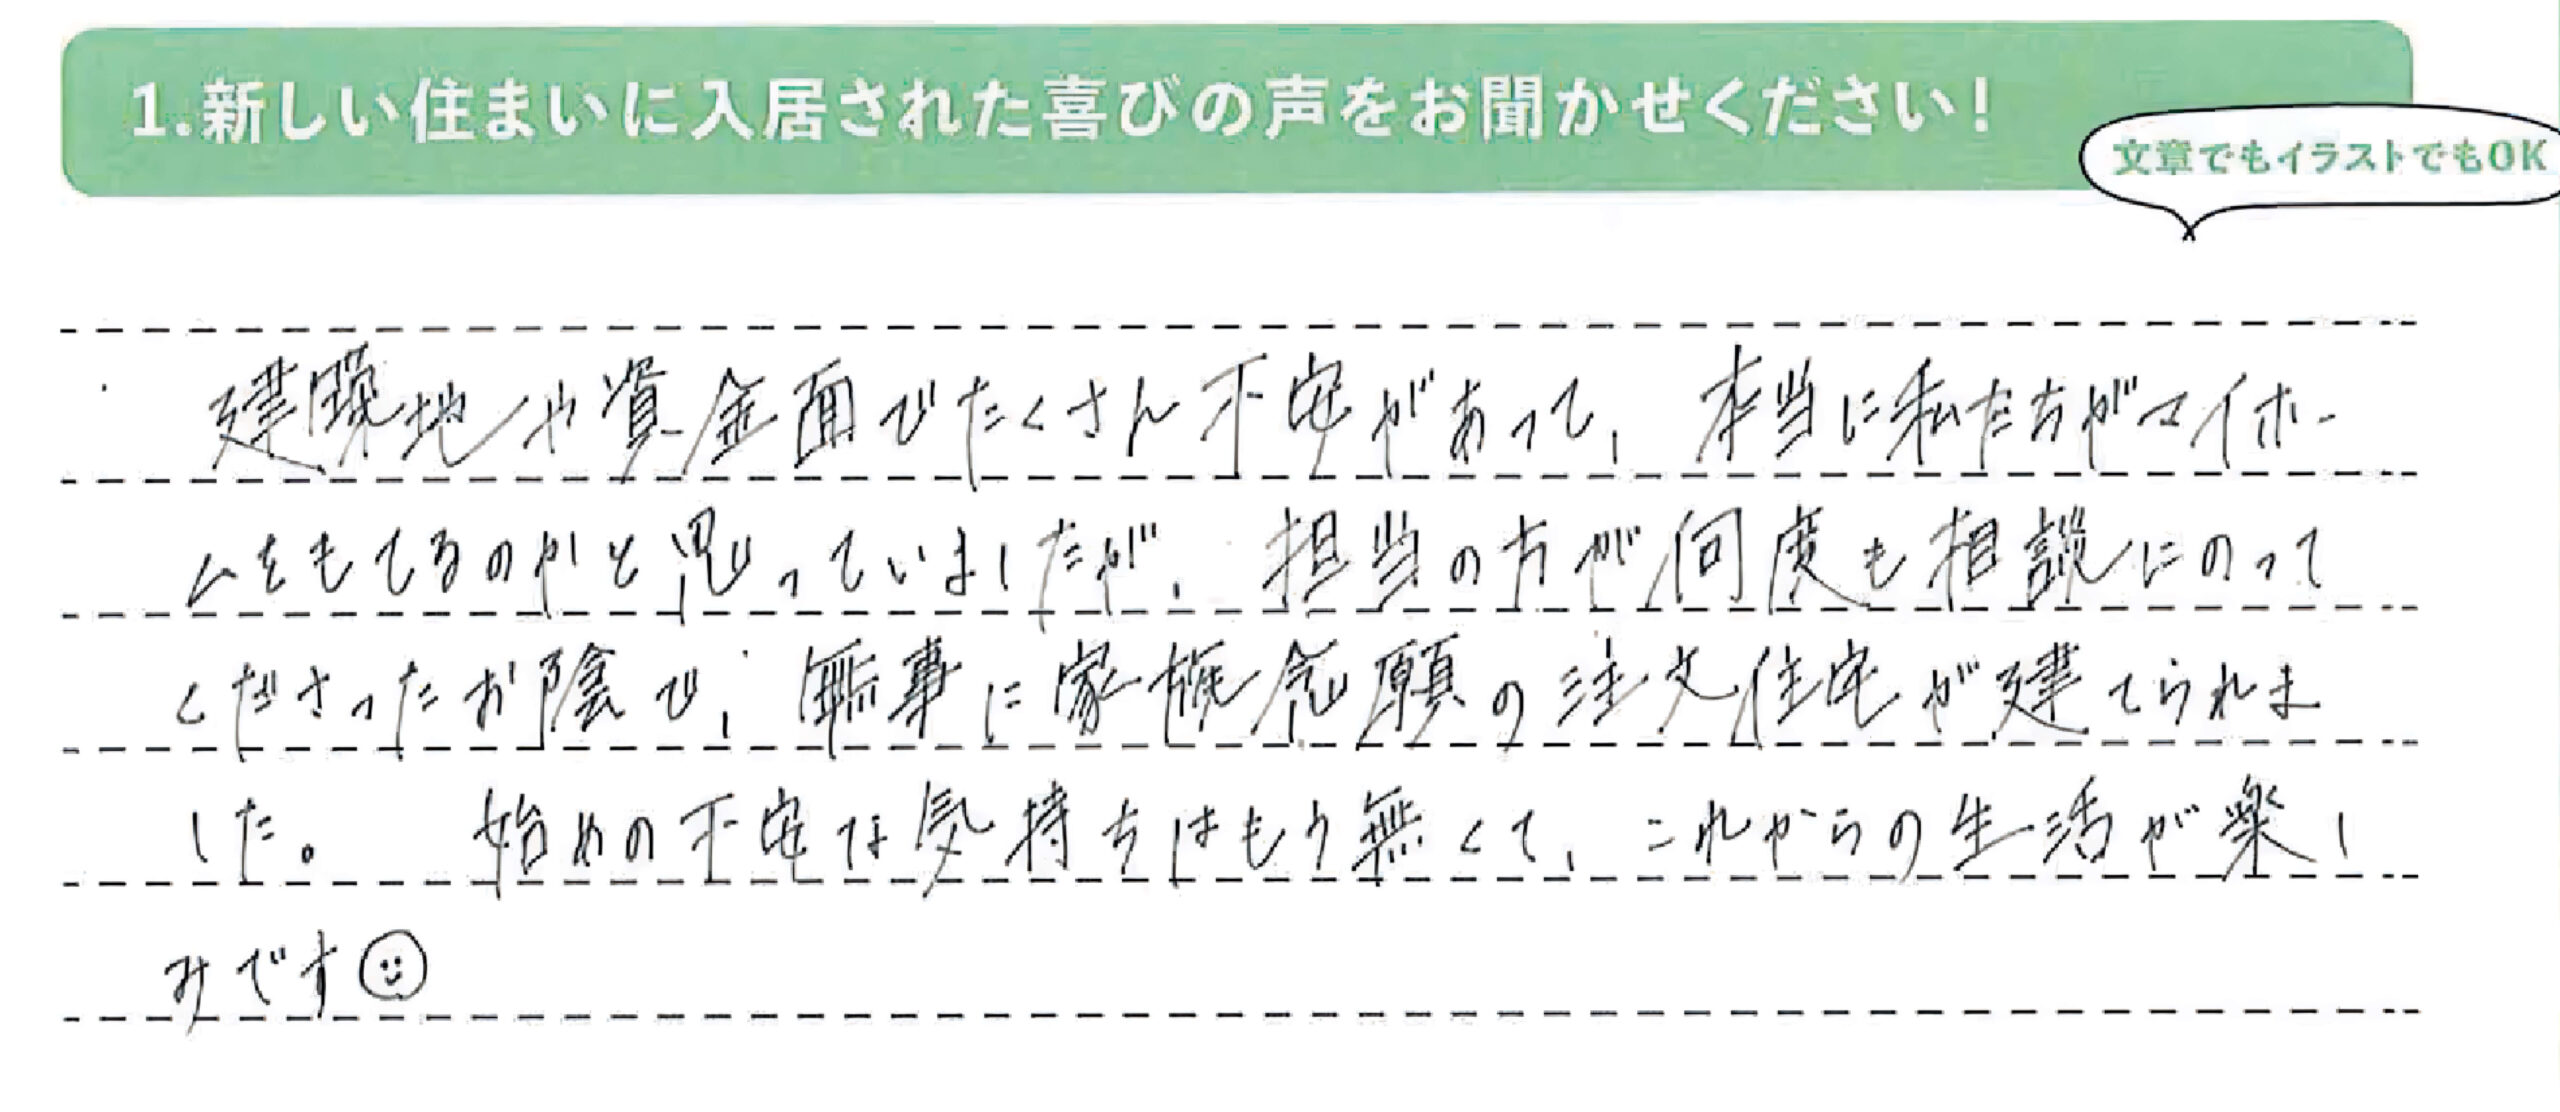 1.新しい住まいに入居された喜びの声をお聞かせください!
文章でもイラストでもOK
建築地や資金面でたくさん不安があって、本当に私たちがマイホー
ムをもてるのかと思っていましたが、担当の方が何度も相談にのって
くださったお陰で、無事に家族念願の注文住宅が建てられま
した。 始めの不安な気持ちはもう無くて、これからの生活が楽し
みです